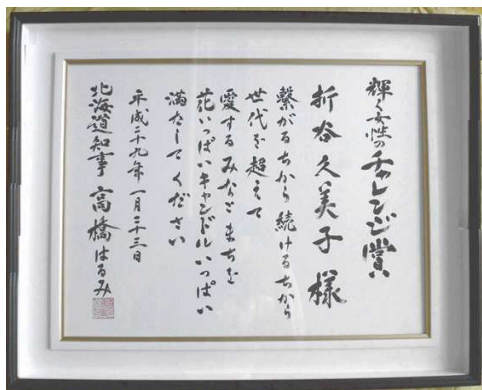 輝く女性のチャレンジ賞
折谷久美子様
繋がるちから続けるちから
世代を超えて
愛するみなとまちを
花いっぱいキャンドルいっぱい
満たしてください
平成二十九年一月二十三日
北海道知事 高橋はるみ